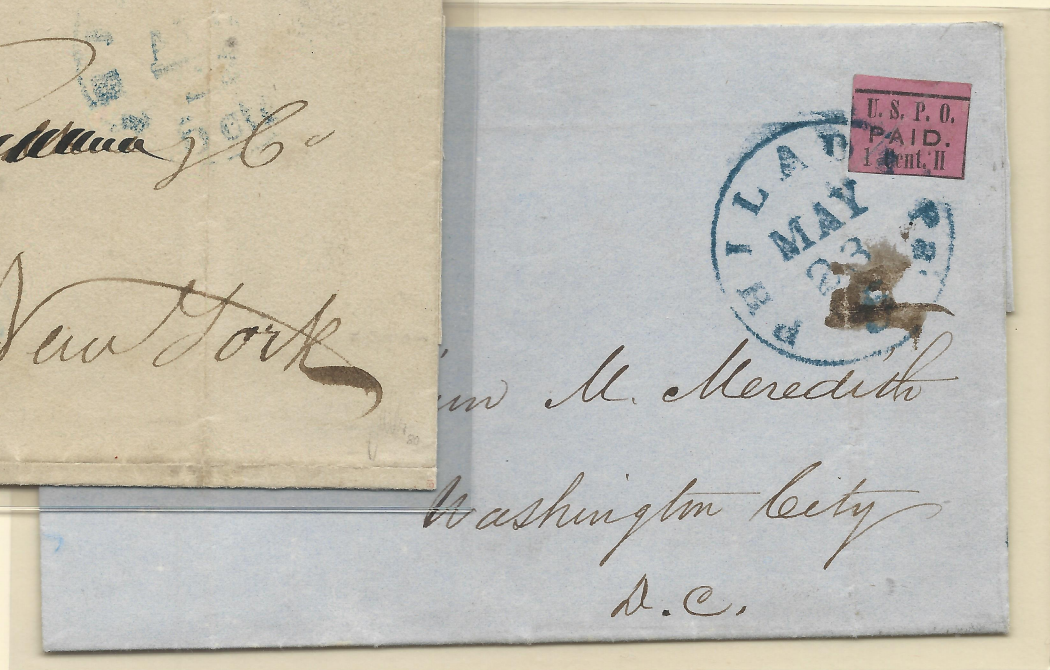 & Co
New York
U. S. P. O.
PAID.
1 Cent. II
PHILAD
MAY
23
M. Meredith
Washington City
D. C.